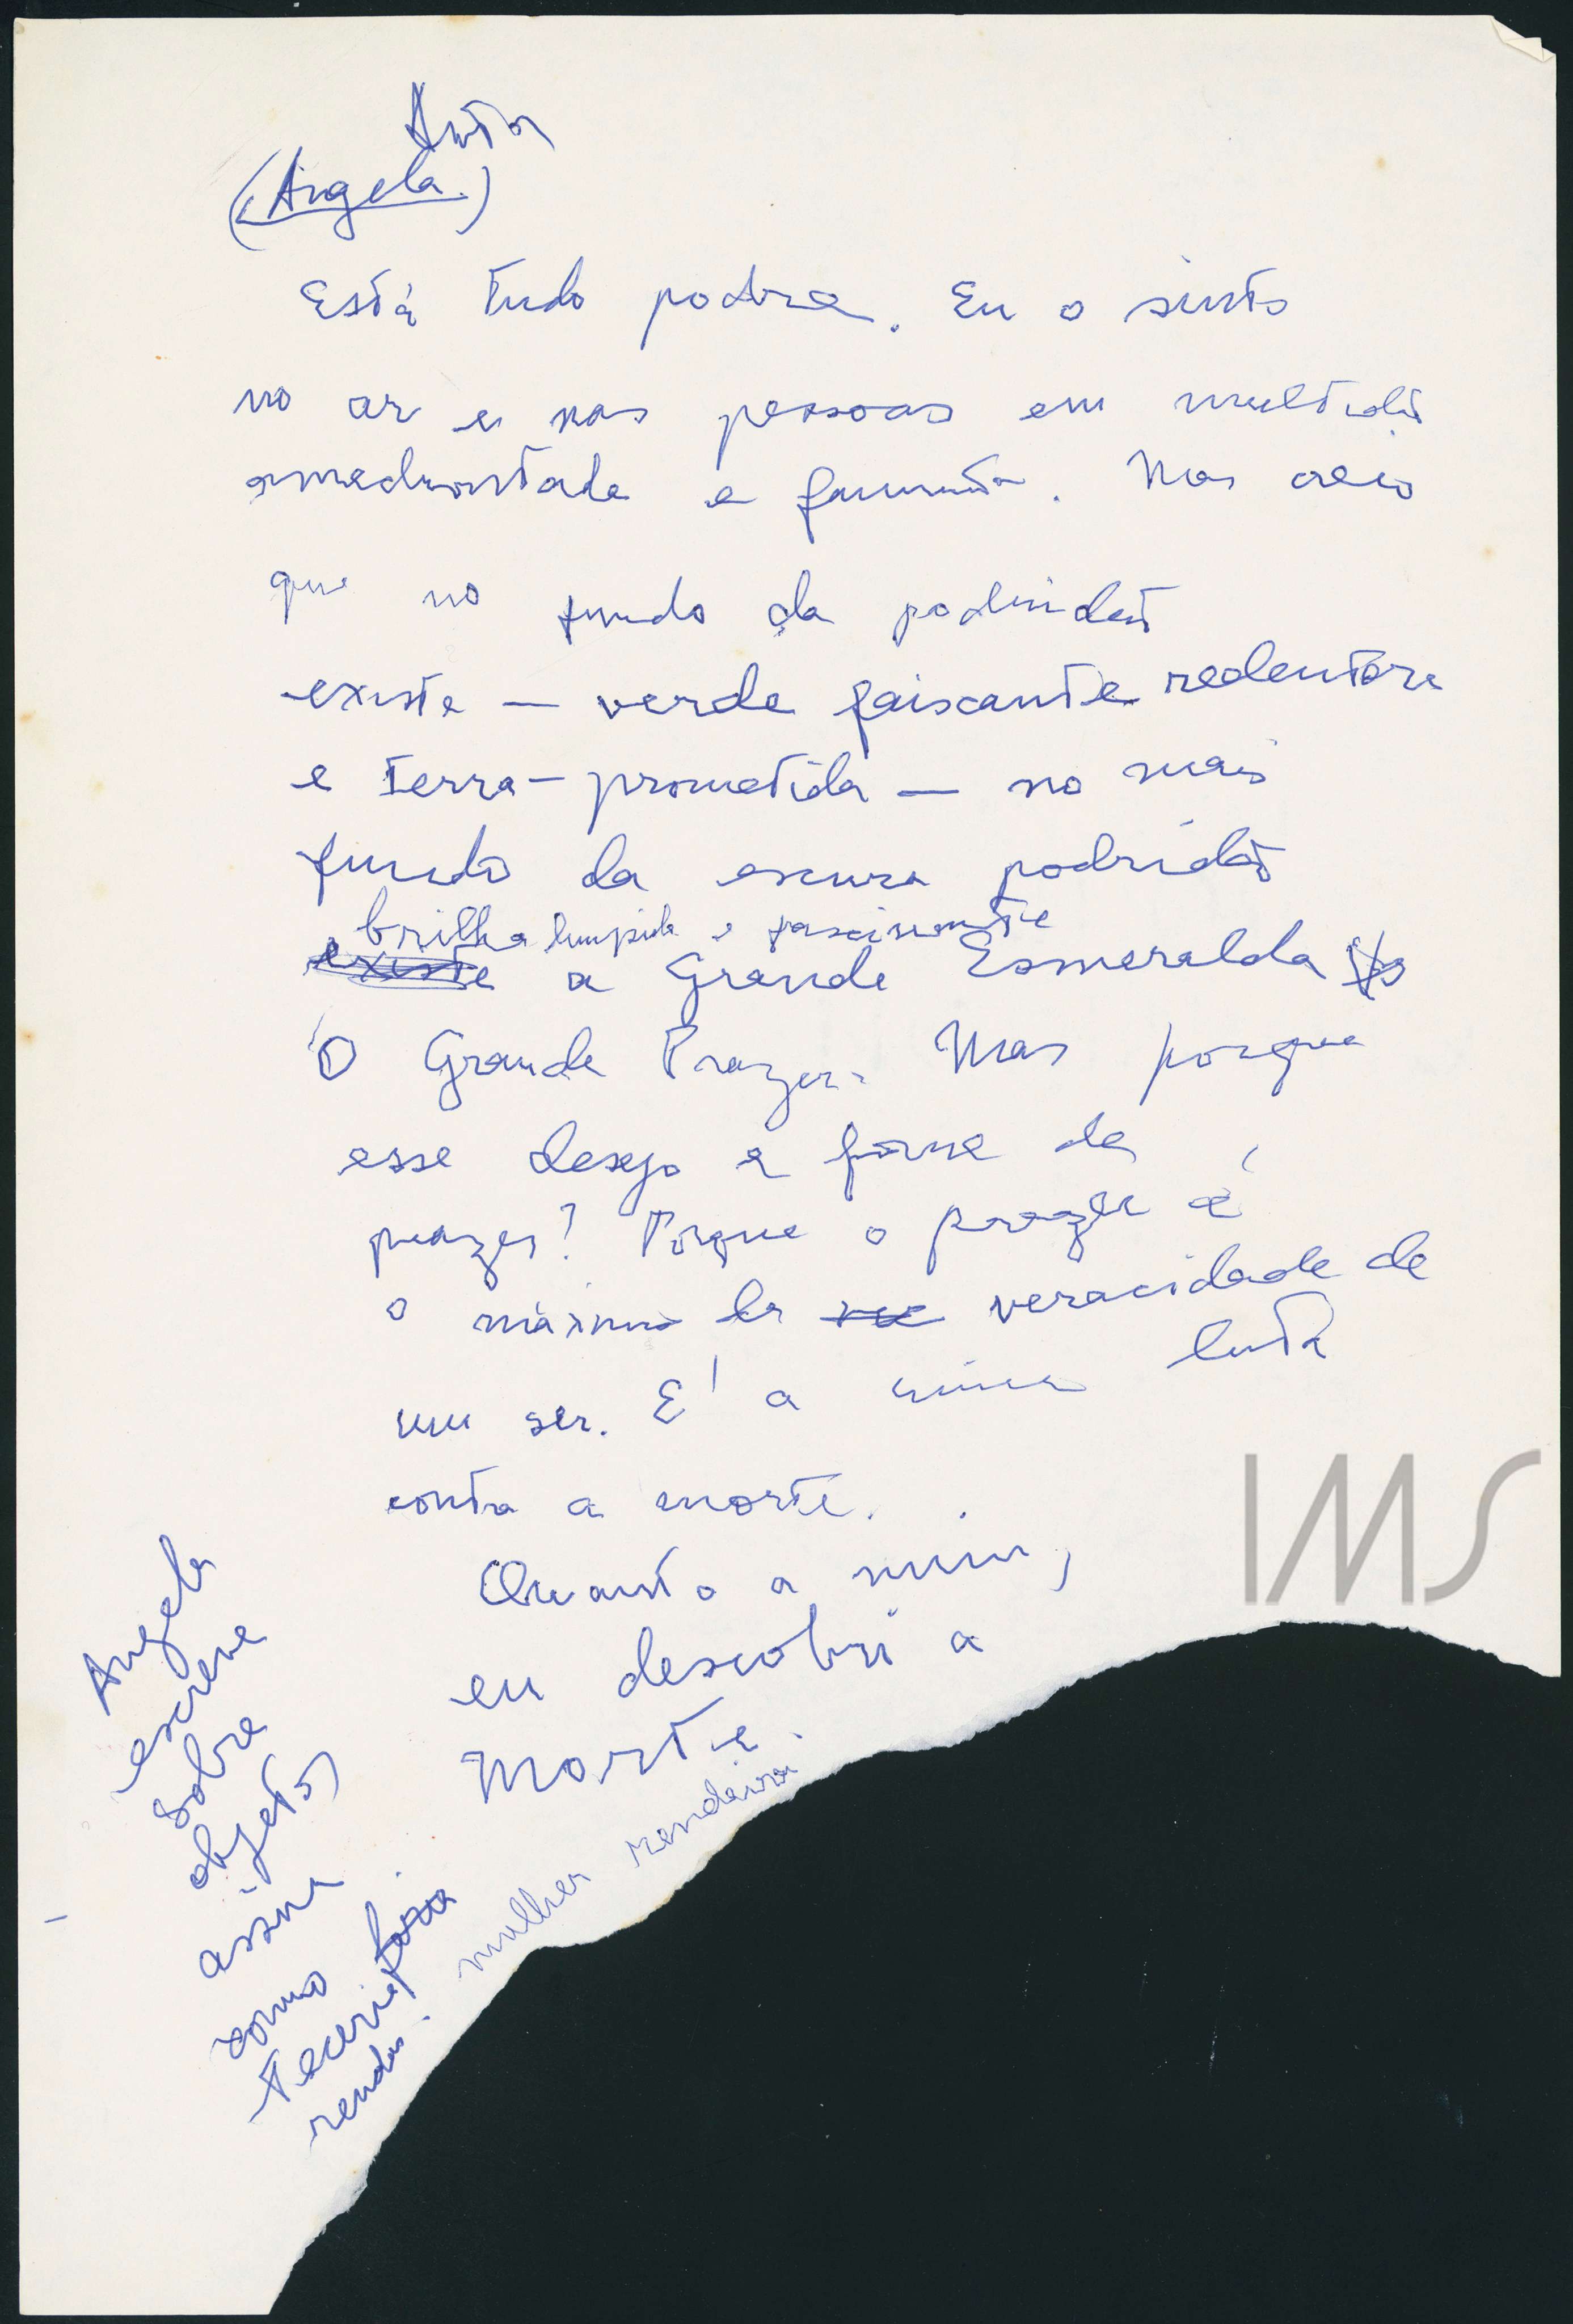 Autor
(Angela.)
Está tudo podre. Eu o sinto
no ar e nas pessoas em multidão
amedrontada e faminta. Mas creio
que no fundo da podridão
existe — verde faiscante redentora
e terra-prometida — no mais
fundo da escura podridão
brilha limpida e fascinante
existe a Grande Esmeralda
O Grande Prazer. Mas porque
esse desejo e fome de
prazer? Porque o prazer é
o máximo da veracidade de
um ser. É a única luta
contra a morte.
Quanto a mim,
eu descobri a
Morte.
Angela
escreve
sobre
objetos
assim
como
teceria
rendas.
mulher rendeira.
IMS